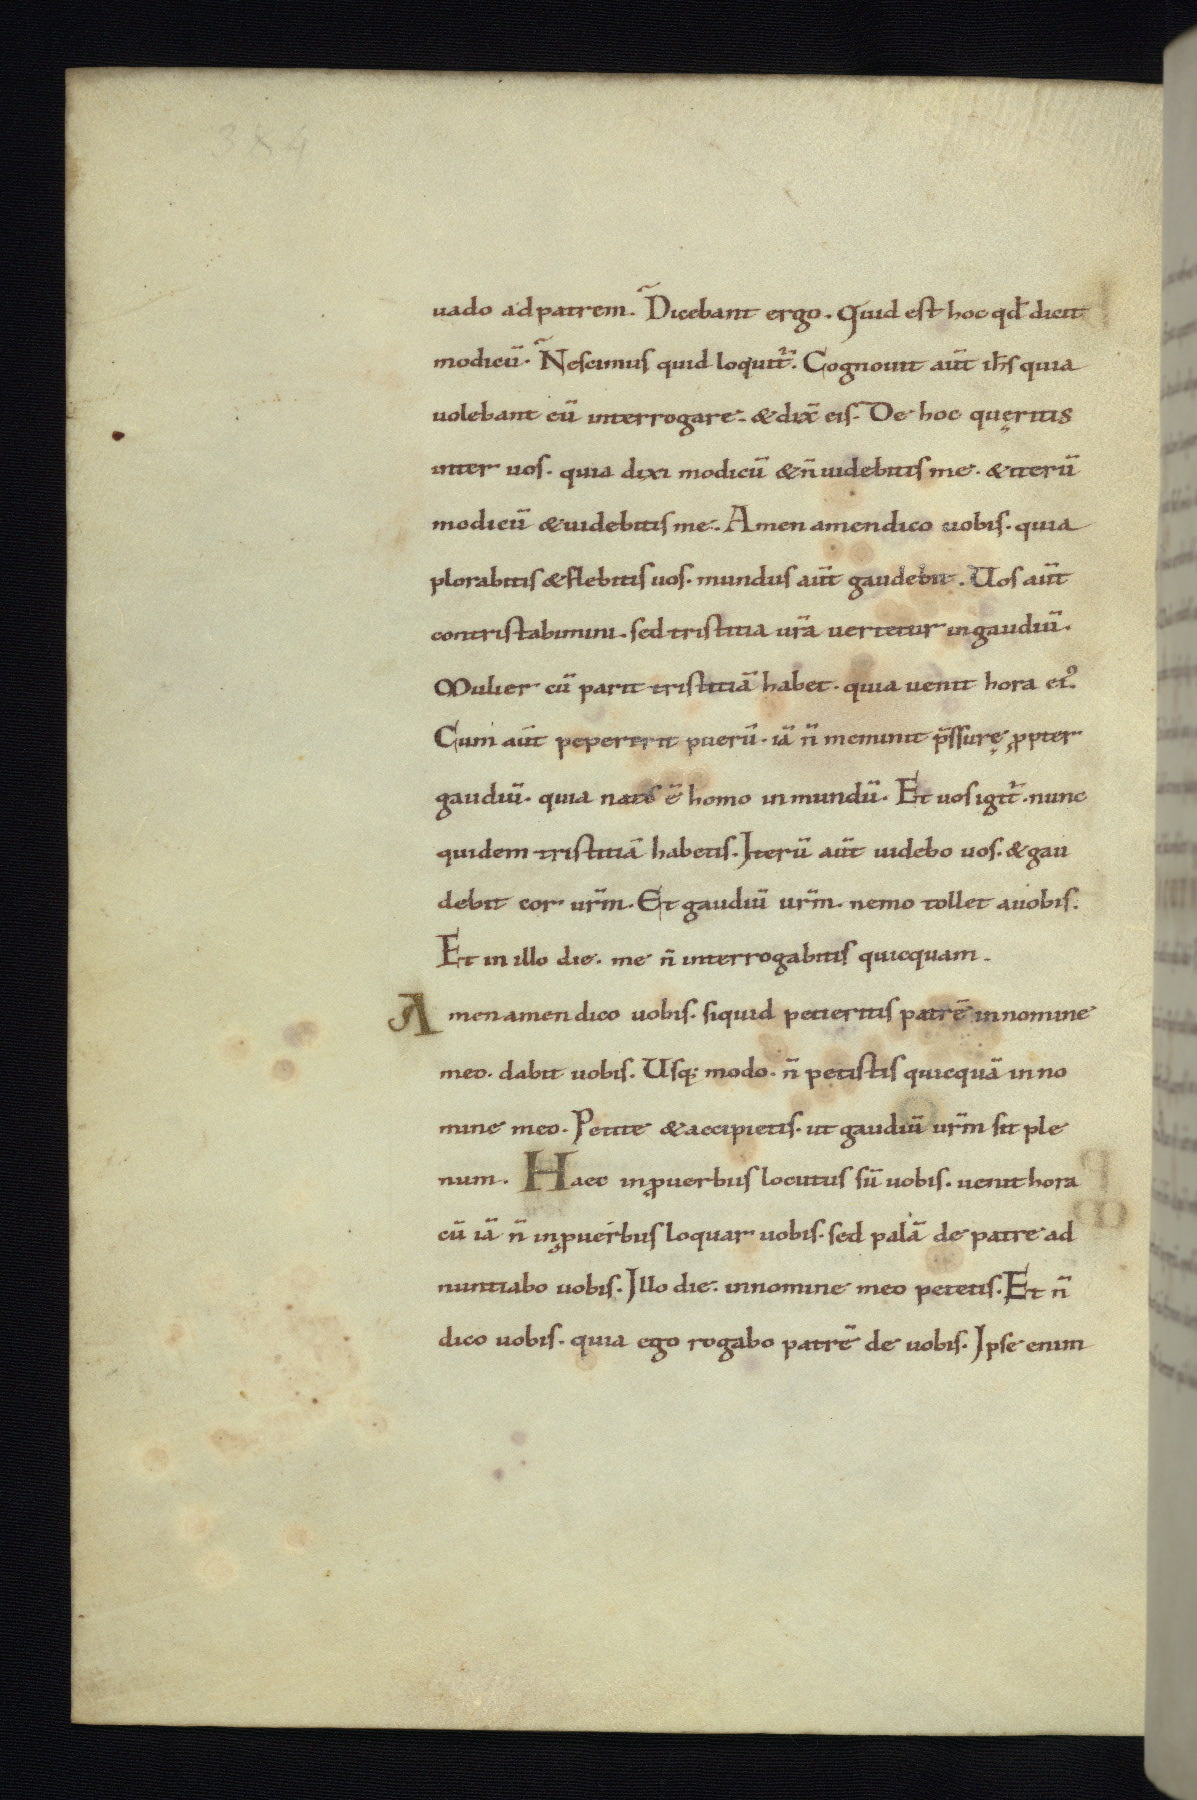 384
uado ad patrem. Dicebant ergo. Quid est hoc qd̄ dicit
modicū. Nescimus quid loquit̄. Cognouit aūt ih̄s quia
uolebant eū interrogare. & dix̄ eis. De hoc quęritis
inter uos. quia dixi modicū & n̄ uidebitis me. & iterū
modicū & uidebitis me. Amen amen dico uobis. quia
plorabitis & flebitis uos. mundus aūt gaudebit. Uos aūt
contristabimini. sed tristitia ur̄a uertetur in gaudiū.
Mulier cū parit tristitiā habet. quia uenit hora eiꝰ.
Cum aūt pepererit puerū. iā n̄ meminit p̄ssurę ꝓpter
gaudiū. quia natꝰ ē homo in mundū. Et uos igit̄. nunc
quidem tristitiā habetis. Iterū aūt uidebo uos. & gau
debit cor ur̄m. Et gaudiū ur̄m. nemo tollet a uobis.
Et in illo die. me n̄ interrogabitis quicquam.
Amen amen dico uobis. siquid petieritis patrē in nomine
meo. dabit uobis. Usq; modo. n̄ petistis quicquā in no
mine meo. Petite & accipietis. ut gaudiū ur̄m sit ple
num. Haec in ꝓuerbiis locutus sū uobis. uenit hora
cū iā n̄ in ꝓuerbiis loquar uobis. sed palā de patre ad
nuntiabo uobis. Illo die. in nomine meo petetis. Et n̄
dico uobis. quia ego rogabo patrē de uobis. Ipse enim